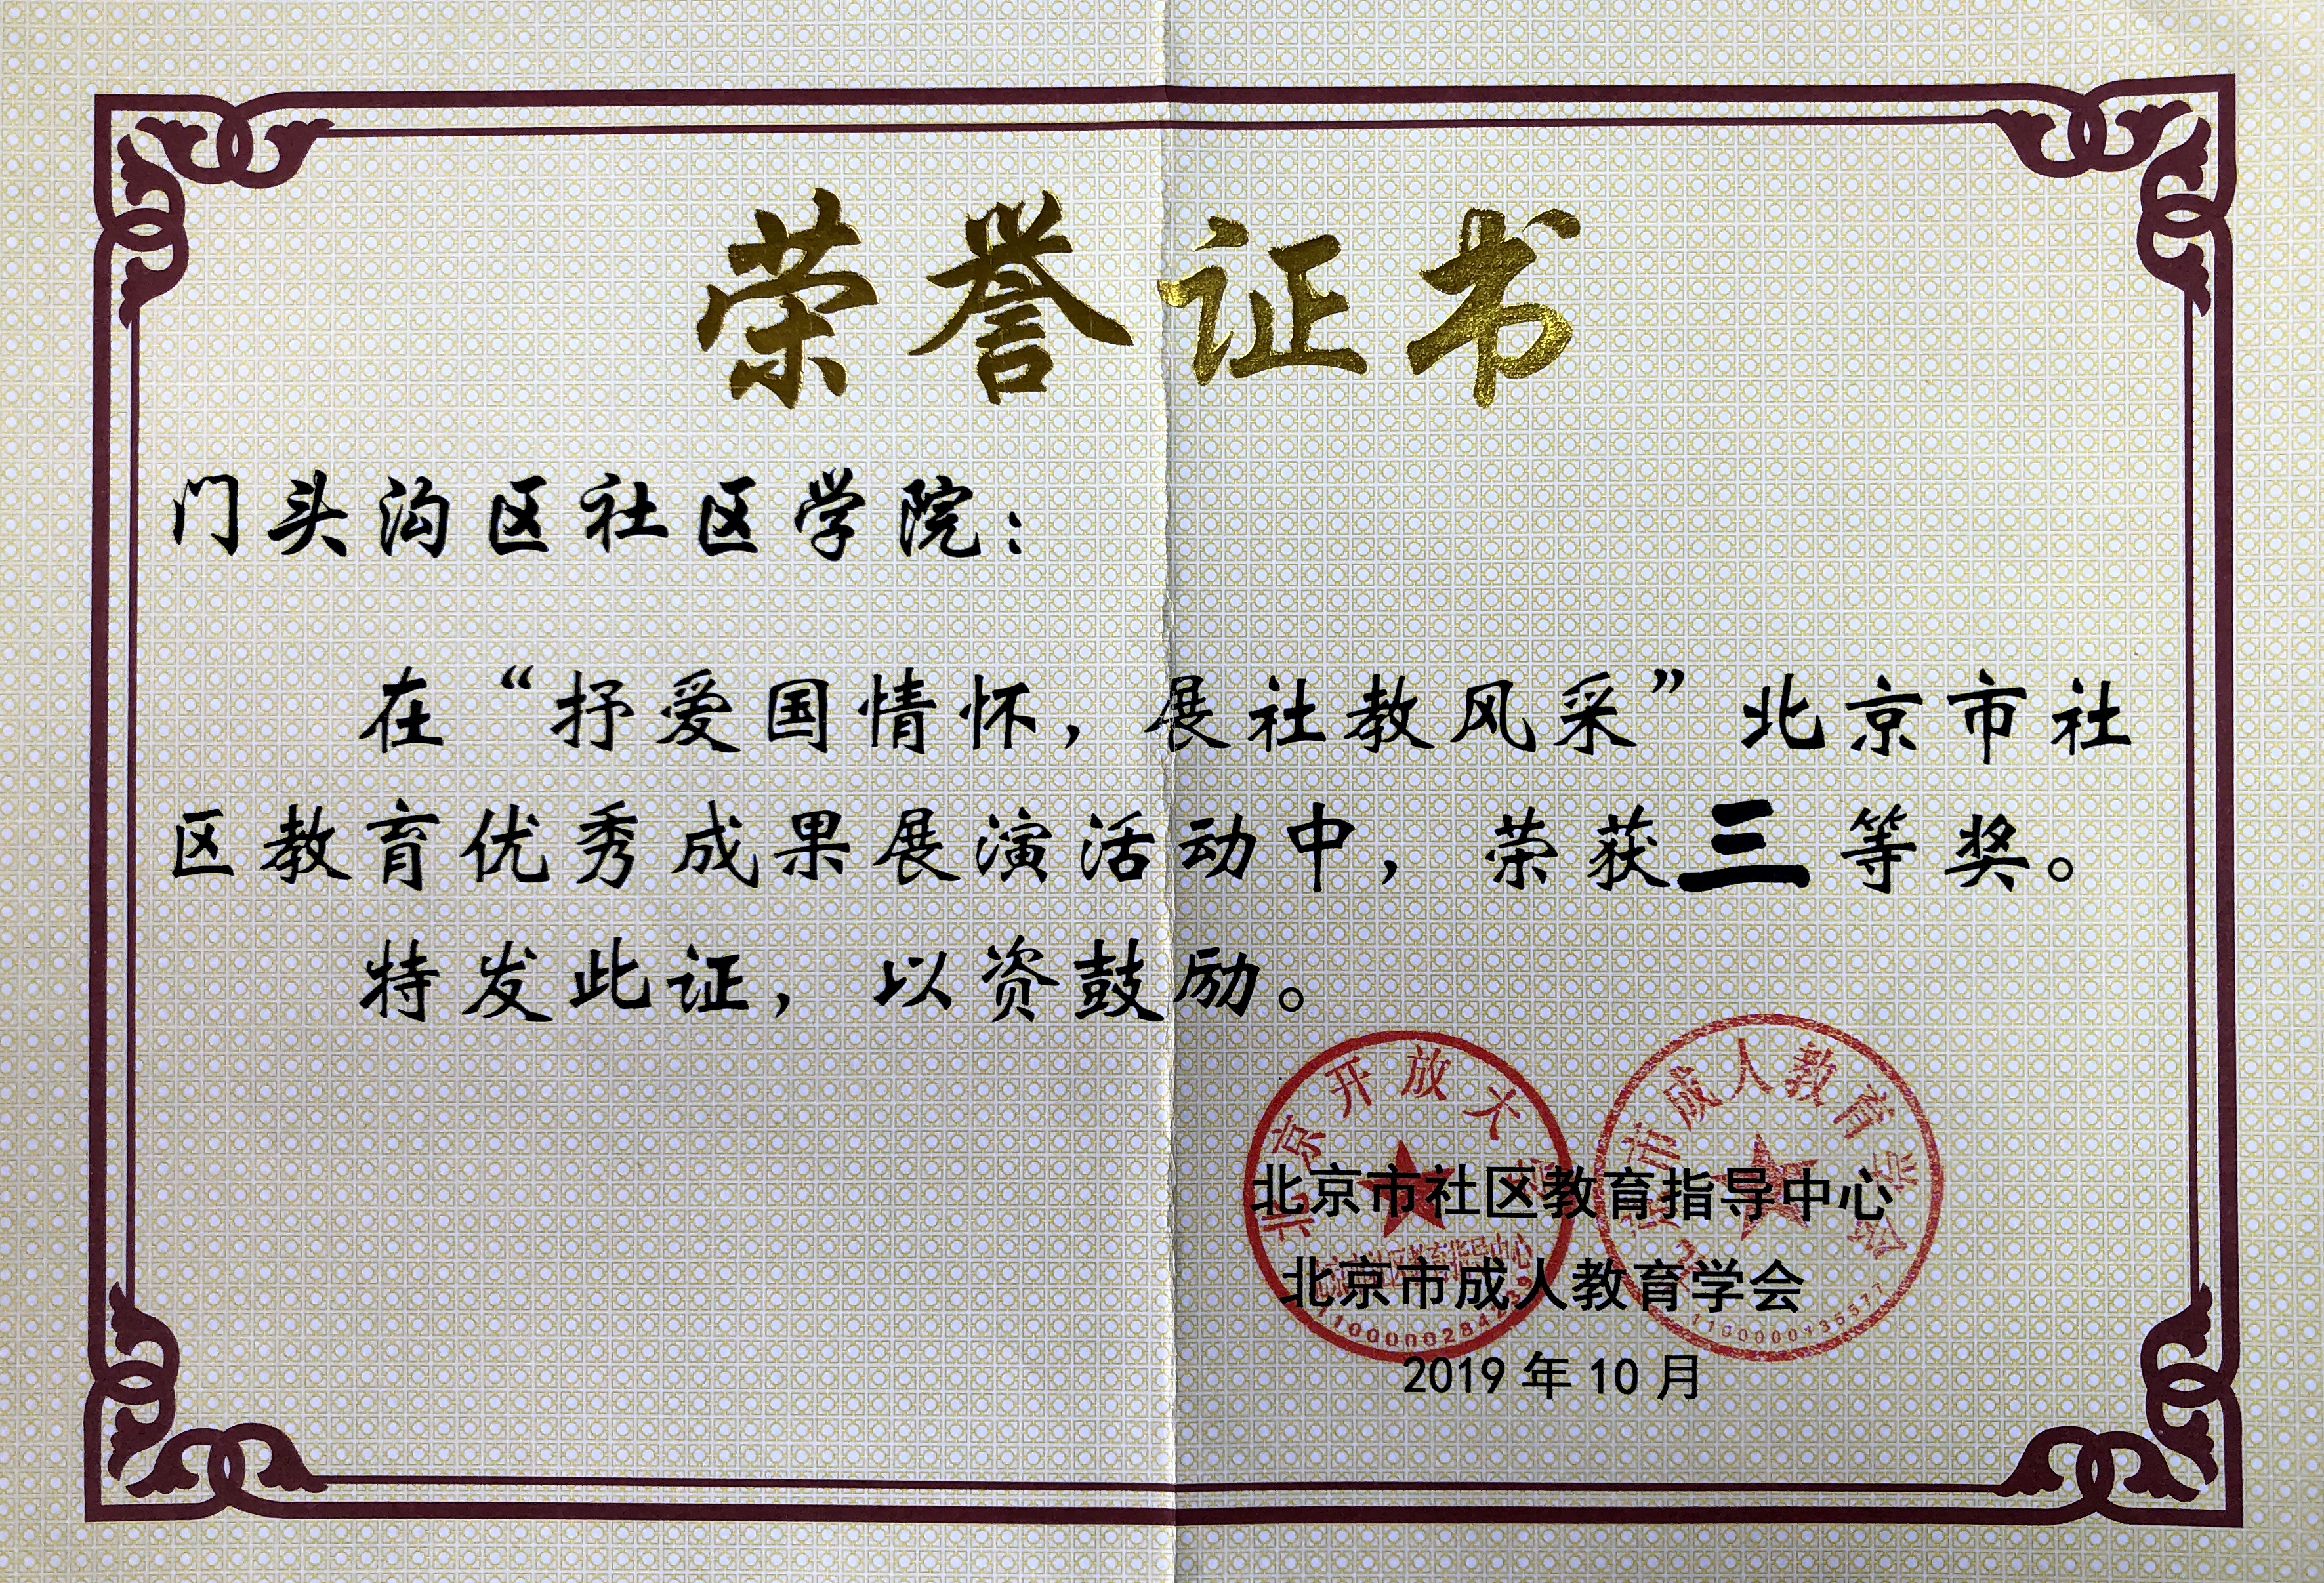 荣誉证书
门头沟区社区学院：
在“抒爱国情怀，展社教风采”北京市社
区教育优秀成果展演活动中，荣获三等奖。
特发此证，以资鼓励。
北京开放大
北京市社区教育指导中心
市成人教育学会
1100000135577
北京市社区教育指导中心
北京市成人教育学会
2019年10月